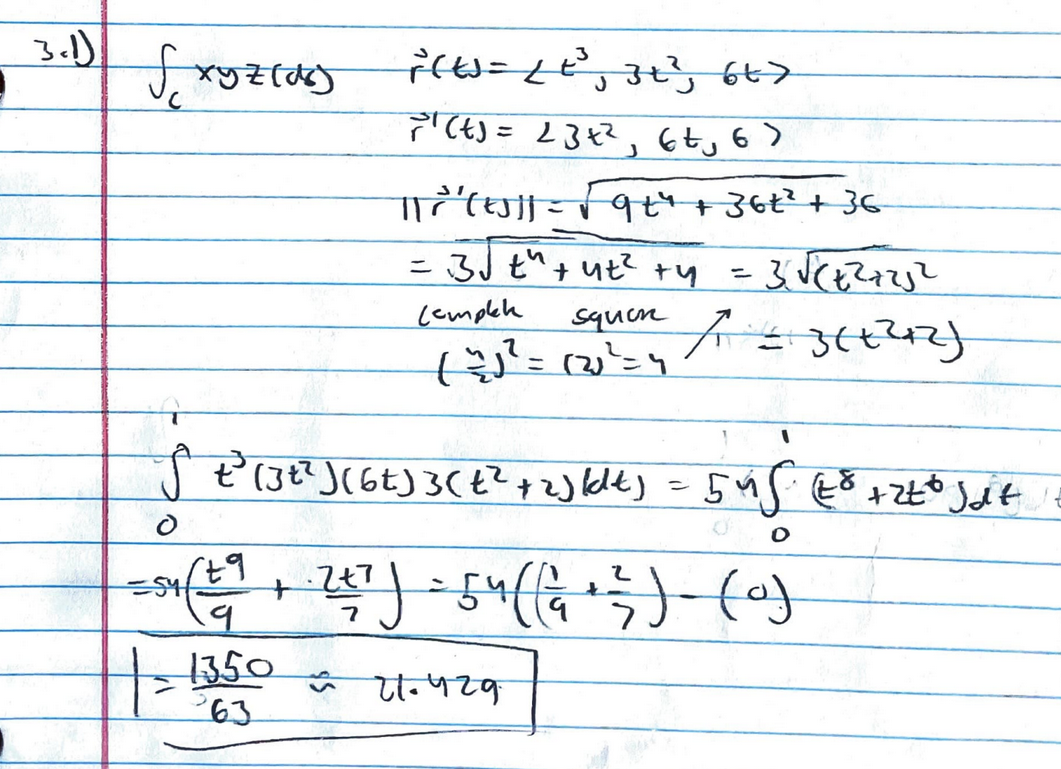 3.1) ∫_C xyz(ds) r⃗(t) = <t³, 3t², 6t>
r⃗'(t) = <3t², 6t, 6>
||r⃗'(t)|| = √(9t⁴ + 36t² + 36
= 3√(t⁴ + 4t² + 4) = 3√(t²+2)²
square ↗ = 3(t²+2)
(4/2)² = (2)² = 4
∫₀¹ t³(3t²)(6t)3(t²+2)(dt) = 54∫₀¹ (t⁸ + 2t⁶)dt
= 54(t⁹/9 + 2t⁷/7) = 54((1/9 + 2/7) - (0)
= 1350/63 ≈ 21.429